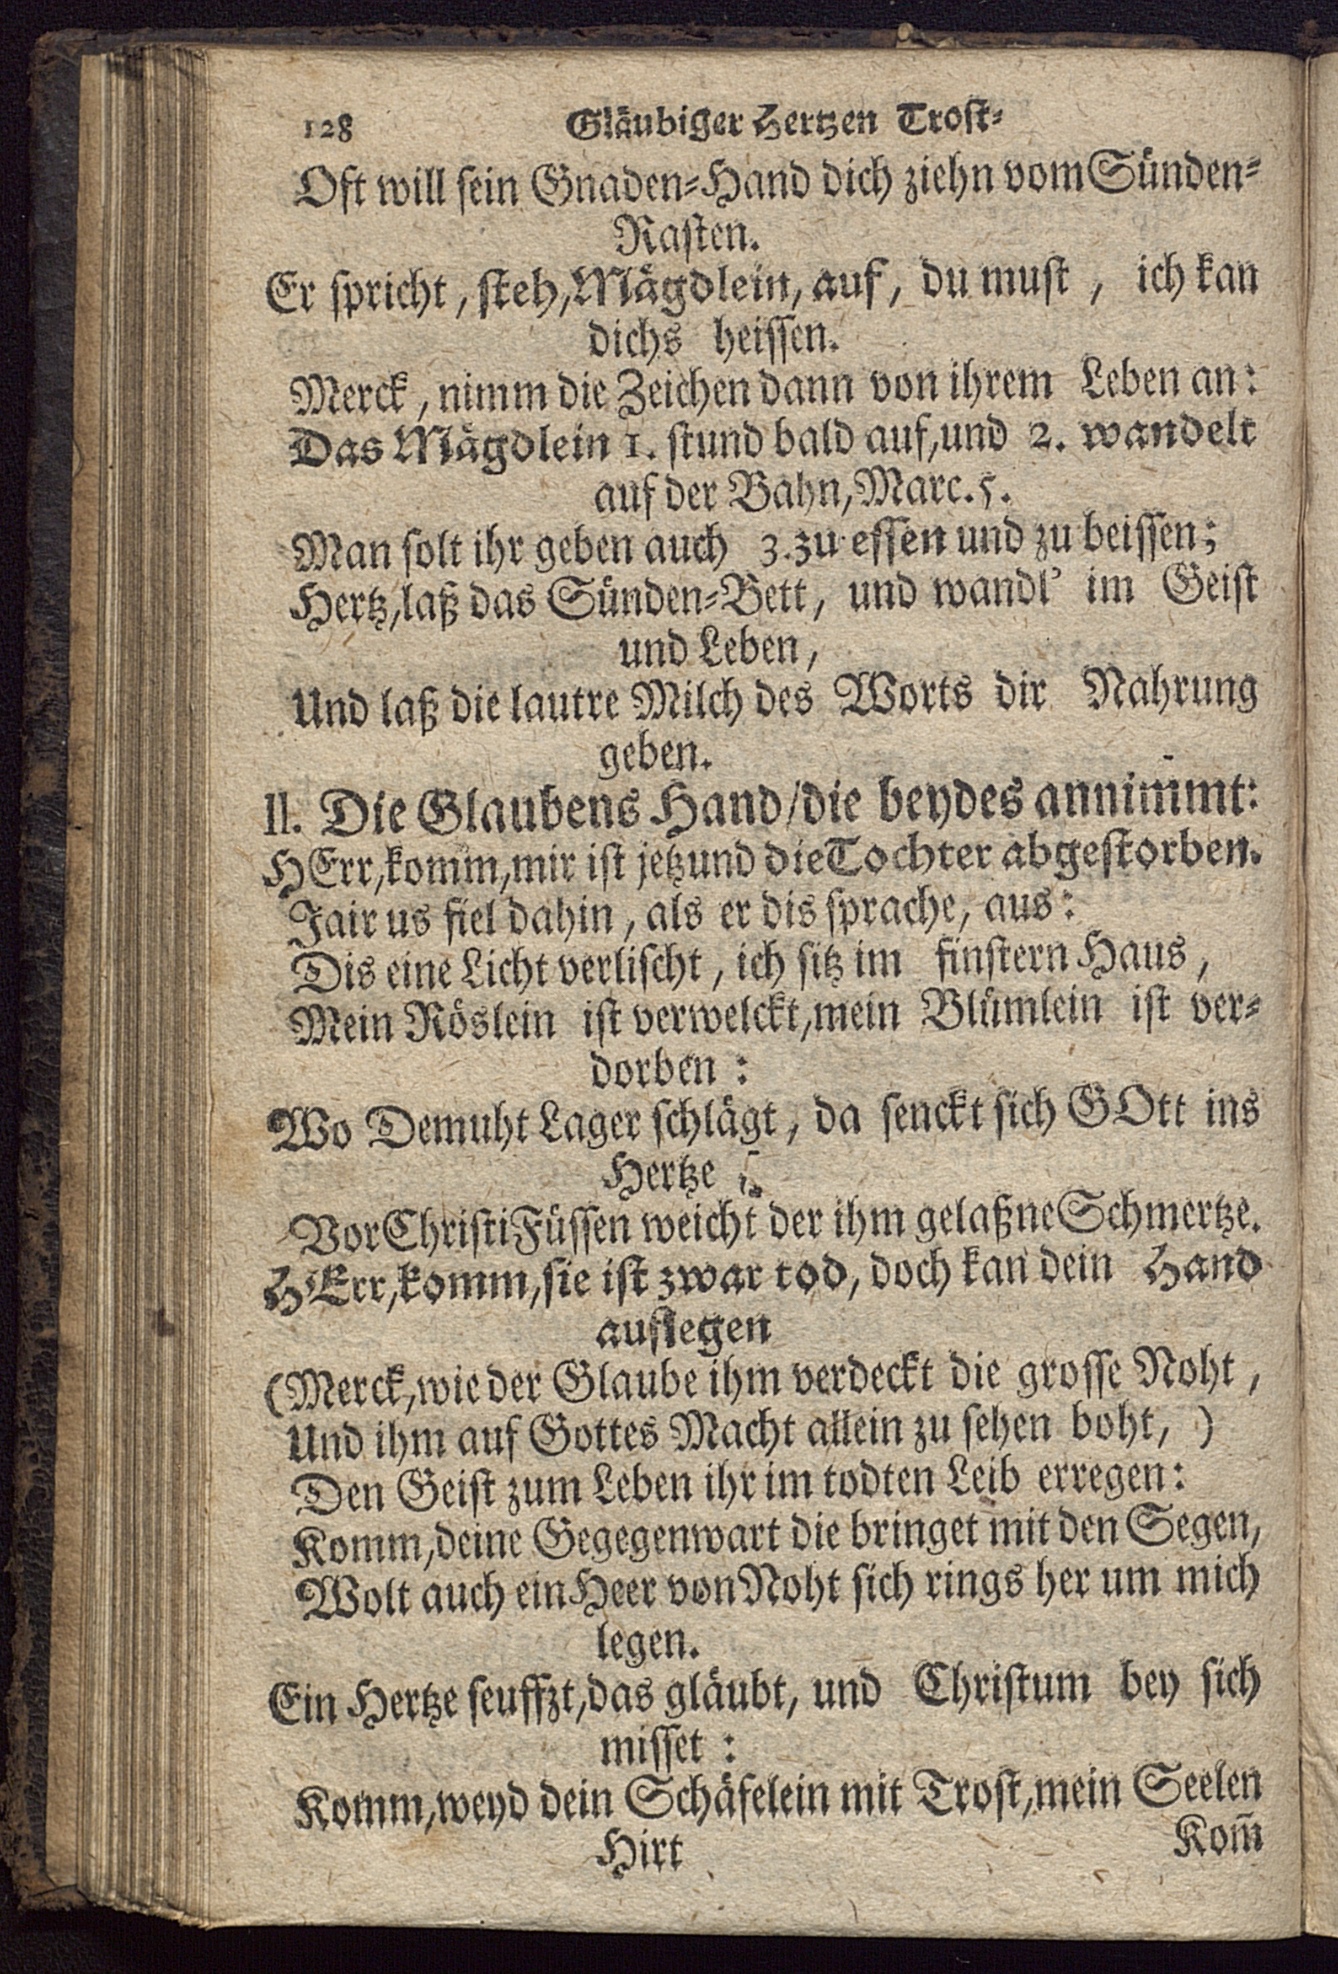 128 Gläubiger Hertzen Trost-
Oft will sein Gnaden-Hand dich ziehn vom Sünden-
Rasten.
Er spricht, steh, Mägdlein, auf, du must, ich kan
dichs heissen.
Merck, nimm die Zeichen dann von ihrem Leben an:
Das Mägdlein 1. stund bald auf, und 2. wandelt
auf der Bahn, Marc. 5.
Man solt ihr geben auch 3. zu essen und zu beissen;
Hertz, laß das Sünden-Bett, und wandl' im Geist
und Leben,
Und laß die lautre Milch des Worts dir Nahrung
geben.
II. Die Glaubens Hand/die beydes annimmt:
HErr, komm, mir ist jetzund die Tochter abgestorben.
Jairus fiel dahin, als er dis sprache, aus:
Dis eine Licht verlischt, ich sitz im finstern Haus,
Mein Röslein ist verwelckt, mein Blümlein ist ver-
dorben:
Wo Demuht Lager schlägt, da senckt sich GOtt ins
Hertze
Vor Christi Füssen weicht der ihm gelaßne Schmertze.
HErr, komm, sie ist zwar tod, doch kan dein Hand
auflegen
(Merck, wie der Glaube ihm verdeckt die grosse Noht,
Und ihm auf Gottes Macht allein zu sehen boht,)
Den Geist zum Leben ihr im todten Leib erregen:
Komm, deine Gegegenwart die bringet mit den Segen,
Wolt auch ein Heer von Noht sich rings her um mich
legen.
Ein Hertze seuffzt, das gläubt, und Christum bey sich
misset:
Komm, weyd dein Schäfelein mit Trost, mein Seelen
Hirt Kom̃